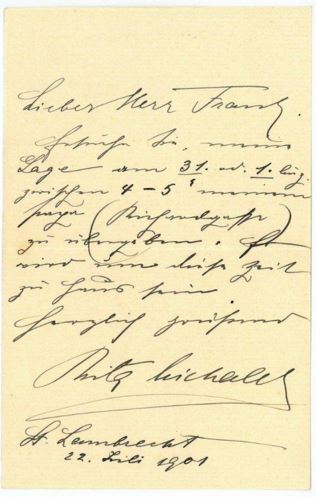 Lieber Herr Frank.
Ersuche Sie, meine
Lage am 31. od. 1.
zwischen 4 – 5 meinem
Papa (Reichardgasse)
zu übergeben. Er
wird um diese Zeit
zu Haus sein.
Herzlich grüßend
Fritz
St. Lambrecht
22. Juli 1901